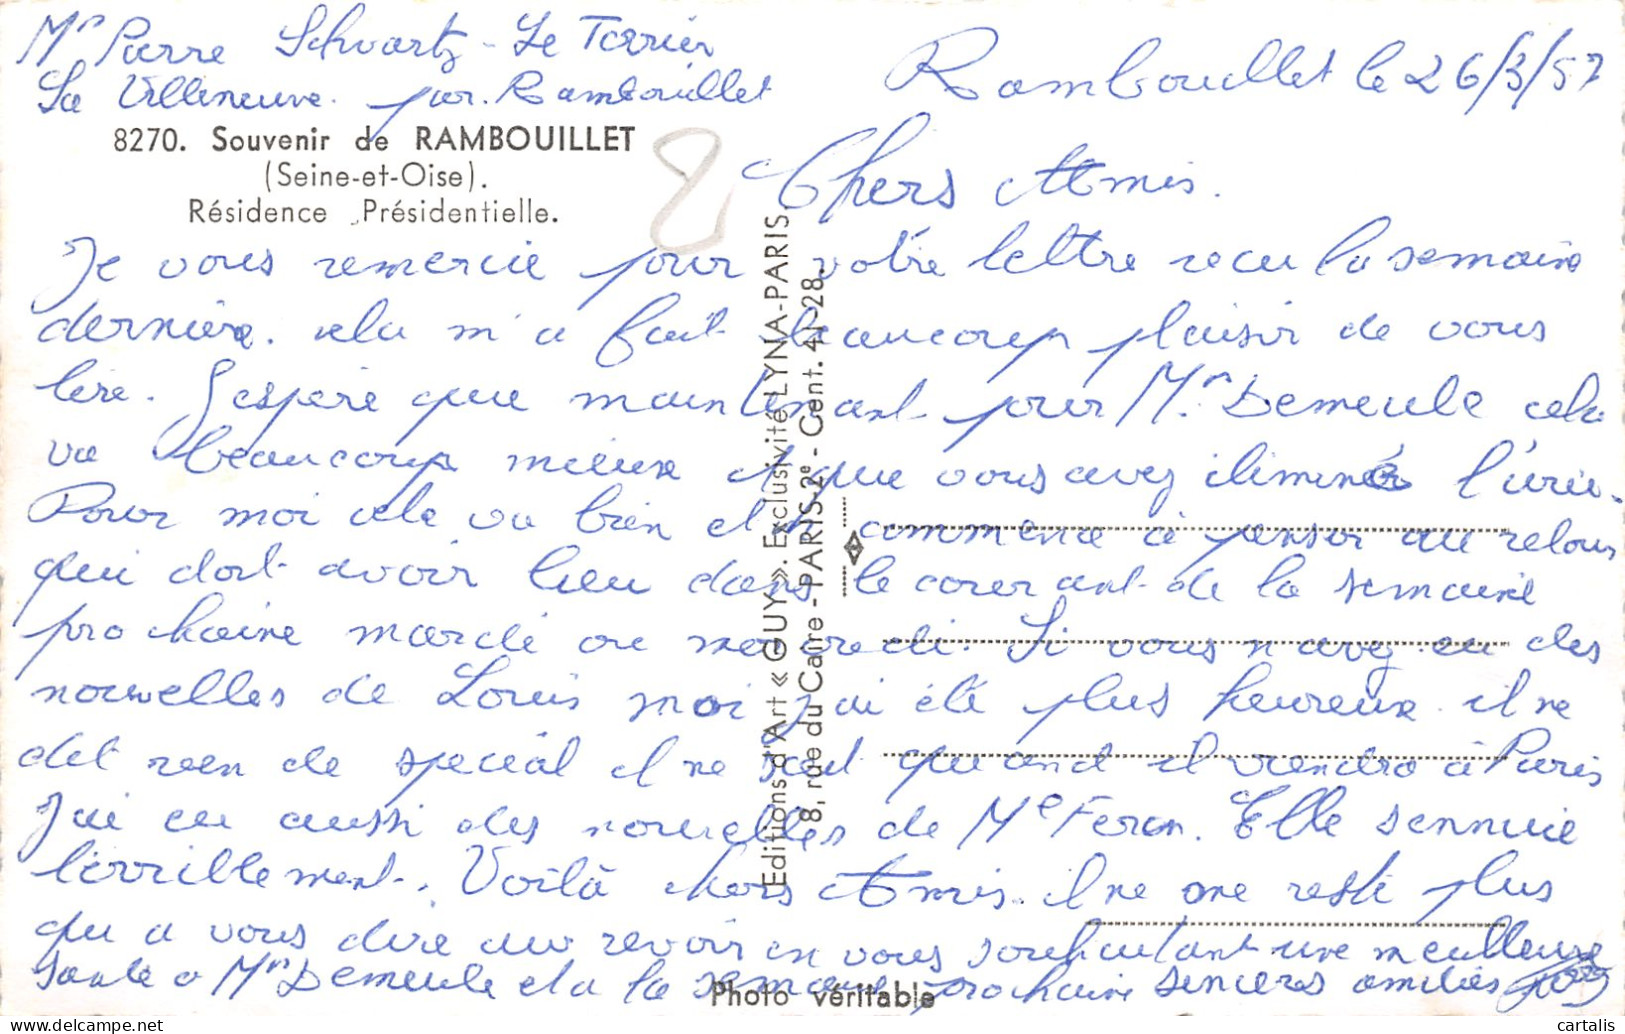 Mr Pierre Schvartz - Le Terrier
La Villeneuve. par. Rambouillet
Rambouillet le 26/3/57
8270. Souvenir de RAMBOUILLET
(Seine-et-Oise).
Résidence Présidentielle.
8
Chers Amis.
Je vous remercie pour votre lettre recu la semaine
dernière. cela m'a fait beaucoup plaisir de vous
lire. J'espère que maintenant pour Mr Demeule cela
va beaucoup mieux et que vous avez éliminé l'urée.
Pour moi cela va bien et je commence à penser au retour
qui doit avoir lieu dans le courant de la semaine
prochaine mardi ou mercredi. Si vous n'avez eu des
nouvelles de Louis moi j'ai été plus heureux. il ne
dit rien de spécial il ne sait quand il viendra à Paris
J'ai eu aussi des nouvelles de Me Feron. Elle sennuie
terriblement. Voilà chers Amis. il ne me reste plus
qu a vous dire au revoir en vous souhaitant une meilleure
santé a Mr Demeule et a la semaine prochaine sincères amitiés
Editions d'Art « GUY ». Exclusivité LYNA-PARIS.
8, rue du Caire - PARIS-2e - Cent. 41-28.
Photo véritable
cartalis